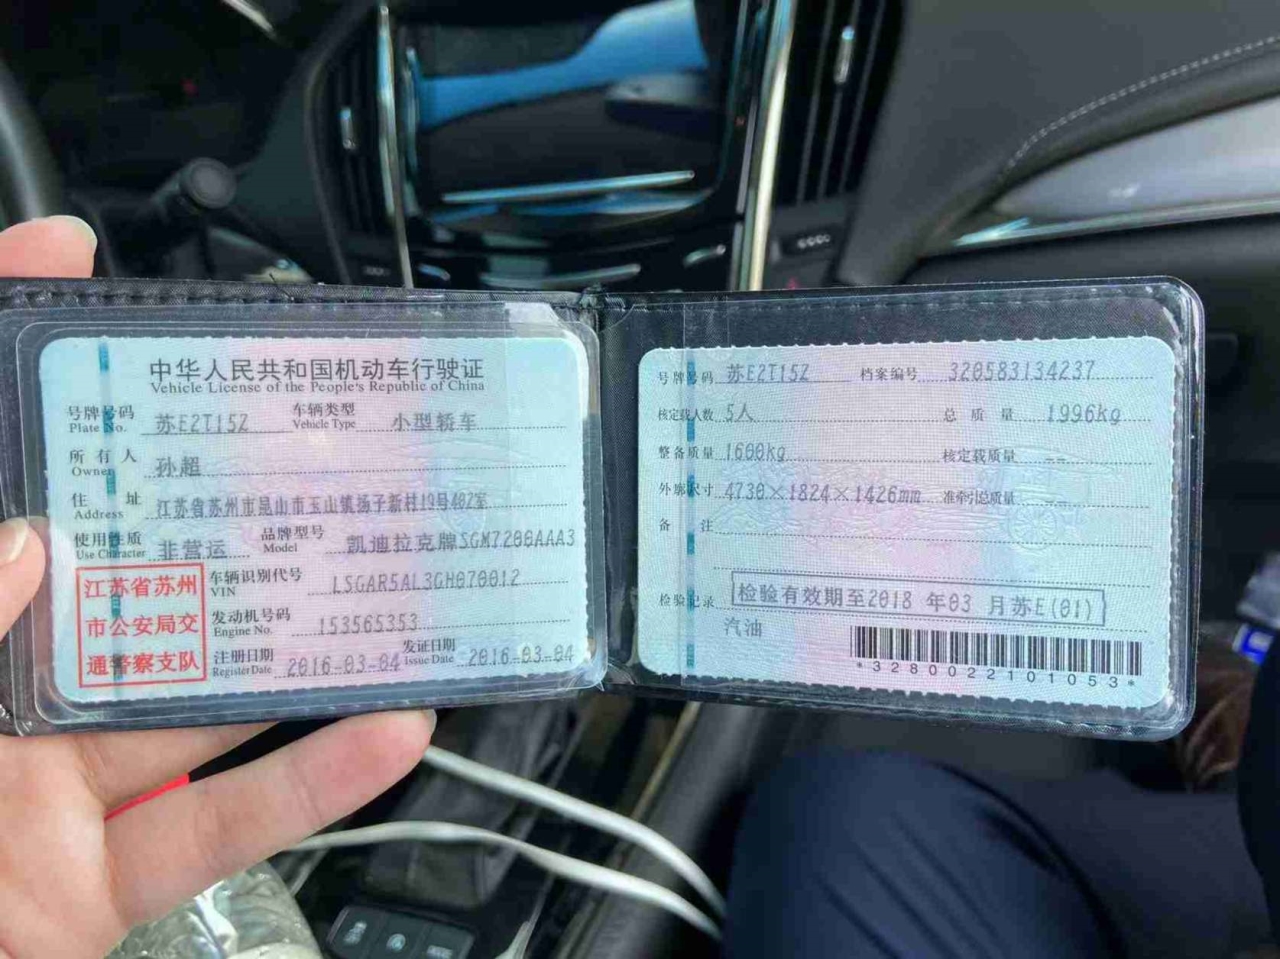 中华人民共和国机动车行驶证
Vehicle License of the People's Republic of China
号牌号码 苏E2T15Z 车辆类型 小型轿车
Plate No. Vehicle Type
所有人 孙超
Owner
住址 江苏省苏州市昆山市玉山镇扬子新村19号402室
Address
使用性质 非营运 品牌型号 凯迪拉克牌SGM7200AAA3
Use Character Model
江苏省苏州
市公安局交
通警察支队
车辆识别代号 LSGAR5AL3GH070012
VIN
发动机号码 153565353
Engine No.
注册日期 2016-03-04 发证日期 2016-03-04
Register Date Issue Date
号牌号码 苏E2T15Z 档案编号 320583134237
核定载人数 5人 总质量 1996kg
整备质量 1600kg 核定载质量 --
外廓尺寸 4730×1824×1426mm 准牵引总质量 --
备注
检验记录 检验有效期至2018年03月苏E(01)
汽油
*3280022101053*